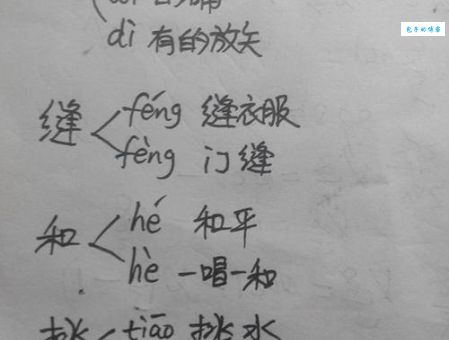 包子的博客
dì 有的放矢
缝 féng 缝衣服
fèng 门缝
和 hé 和平
hè 一唱一和
挑 tiāo 挑水